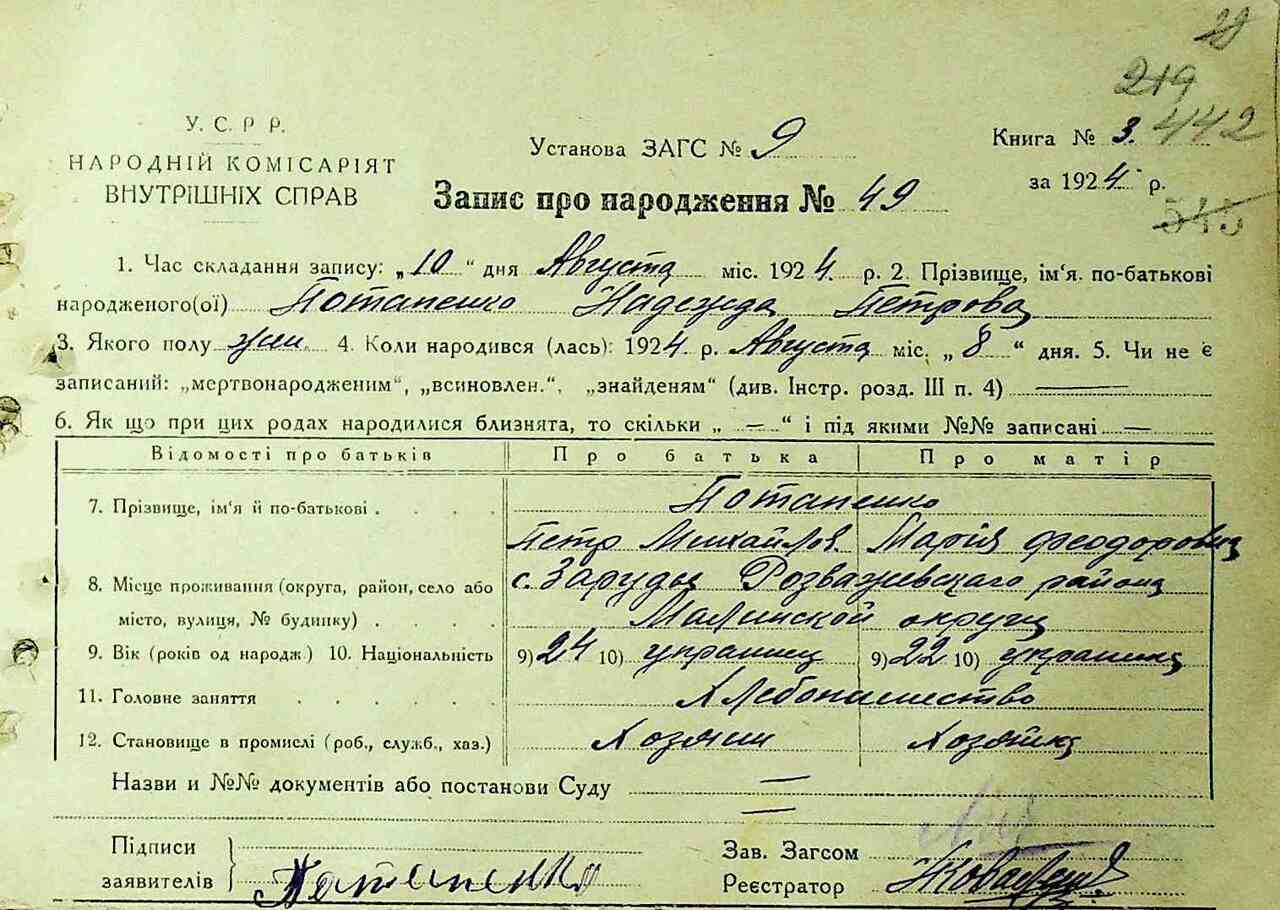 28
219
442
У. С. Р Р.
НАРОДНІЙ КОМІСАРІЯТ
ВНУТРІШНІХ СПРАВ
Установа ЗАГС № 9
Книга № 3.
за 1924 р.
545
Запис про народження № 49
1. Час складання запису: „10“ дня Августа міс. 1924. р. 2. Прізвище, ім'я. по-батькові
народженого(ої) Потапенко Надежда Петрова
3. Якого полу жен. 4. Коли народився (лась): 1924 р. Августа міс. „8“ дня. 5. Чи не є
записаний: „мертвонародженим“, „всиновлен.“, „знайденям“ (див. Інстр. розд. III п. 4) —
6. Як що при цих родах народилися близнята, то скільки „ — “ і під якими №№ записані —
Відомості про батьків Про батька Про матір
7. Прізвище, ім'я й по-батькові . . . . Потапенко
Петр Михайлов. Марія Феодоровна
8. Місце проживання (округа, район, село або с. Заруды Розважевскаго района
місто, вулиця, № будинку) . . . . Малинской округи
9. Вік (років од народж.) 10. Національність 9) 24 10) украинец 9) 22 10) украинка
11. Головне заняття . . . . . . Хлебопашество
12. Становище в промислі (роб., служб., хаз.) Хозяин Хозяйка
Назви и №№ документів або постанови Суду —
—
Підписи
заявителів
Потапенко
Зав. Загсом
Реєстратор